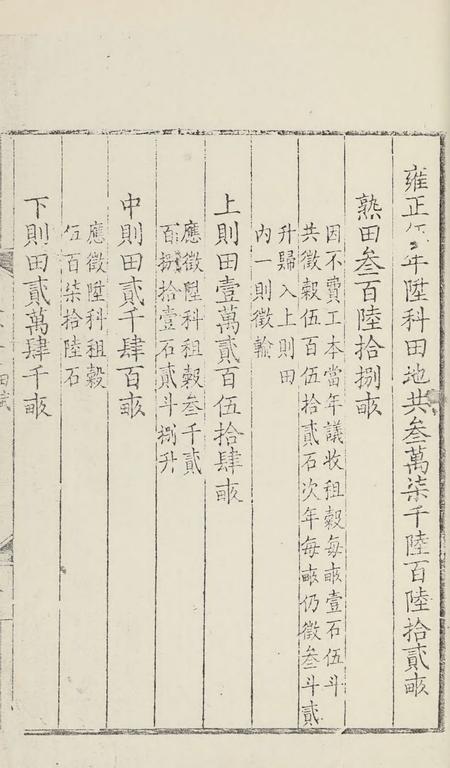 雍正年陞科田地共叁萬柒千陸百陸拾貳畝
熟田叁百陸拾捌畝
因不費工本當年議收租穀每畝壹石伍斗
共徵穀伍百伍拾貳石次年每畝仍徵叁斗貳
升歸入上則田
內一則徵輸
上則田壹萬貳百伍拾肆畝
應徵陞科租穀叁千貳
百捌拾壹石貳斗捌升
中則田貳千肆百畝
應徵陞科租穀
伍百柒拾陸石
下則田貳萬肆千畝